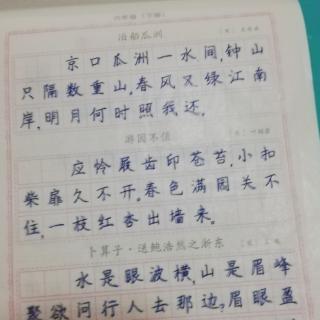 六年级(下册)
泊船瓜洲
[宋]王安石
京口瓜洲一水间,钟山
只隔数重山。春风又绿江南
岸,明月何时照我还。
游园不值
[宋]叶绍翁
应怜屐齿印苍苔,小扣
柴扉久不开。春色满园关不
住,一枝红杏出墙来。
卜算子·送鲍浩然之浙东
水是眼波横,山是眉峰
聚。欲问行人去那边,眉眼盈